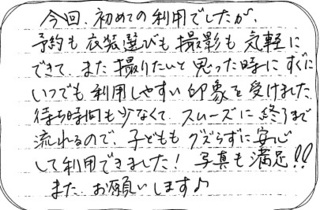 今回、初めての利用でしたが、
予約も衣装選びも撮影も気軽に
できて、また撮りたいと思った時にすぐに
いつでも利用しやすい印象を受けました
待ち時間も少なくて、スムーズに終りまで
流れるので、子どももグズらずに安心
して利用できました!写真も満足!!
また、お願いします♪